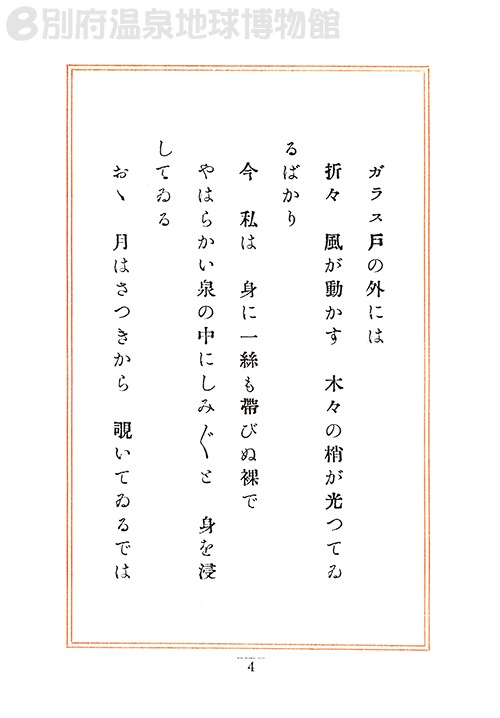 別府温泉地球博物館
ガラス戸の外には
折々 風が動かす 木々の梢が光つてゐ
るばかり
今 私は 身に一絲も帶びぬ裸で
やはらかい泉の中にしみ〴〵と 身を浸
してゐる
おゝ 月はさつきから 覗いてゐるでは
4